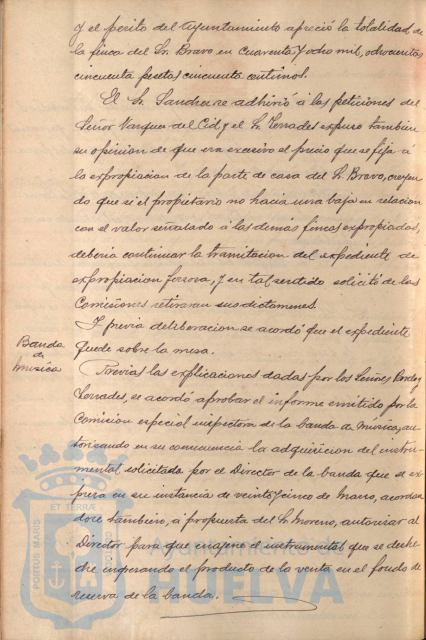 y el perito del Ayuntamiento apreció la totalidad de
la finca del Sr. Bravo en cuarenta y ocho mil, ochocientas
cincuenta pesetas cincuenta centimos.
El Sr. Sandra se adhirió á las peticiones del
Señor Vazquez del Cid, y el Sr. Terrades expuso tambien
su opinion de que era excesivo el precio que se fija á
la expropiacion de la parte de casa del Sr. Bravo, creyen
do que si el propietario no hacia una baja en relacion
con el valor señalado á las demás fincas expropiadas,
deberia continuar la tramitacion del expediente de
expropiacion forzosa, y en tal sentido solicitó de las
Comisiones retiraran sus dictamenes.
Y previa deliberacion se acordó que el expediente
quede sobre la mesa.
Banda
de
musica
Previas las explicaciones dadas por los Señores y
Terrades, se acordó aprobar el informe emitido por la
Comision especial inspectora de la banda de musica, au
torizando en su consecuencia la adquisicion del instru-
mental solicitada por el Director de la banda que se ex
presa en su instancia de veinticinco de Marzo, acordan
dose tambien, á propuesta del Sr. Moreno, autorizar al
Director para que enajene el instrumental que se deshe
che ingresando el producto de la venta en el fondo de
reserva de la banda.
PORTUS MARIS ET TERRÆ
Ayuntamiento de
HUELVA